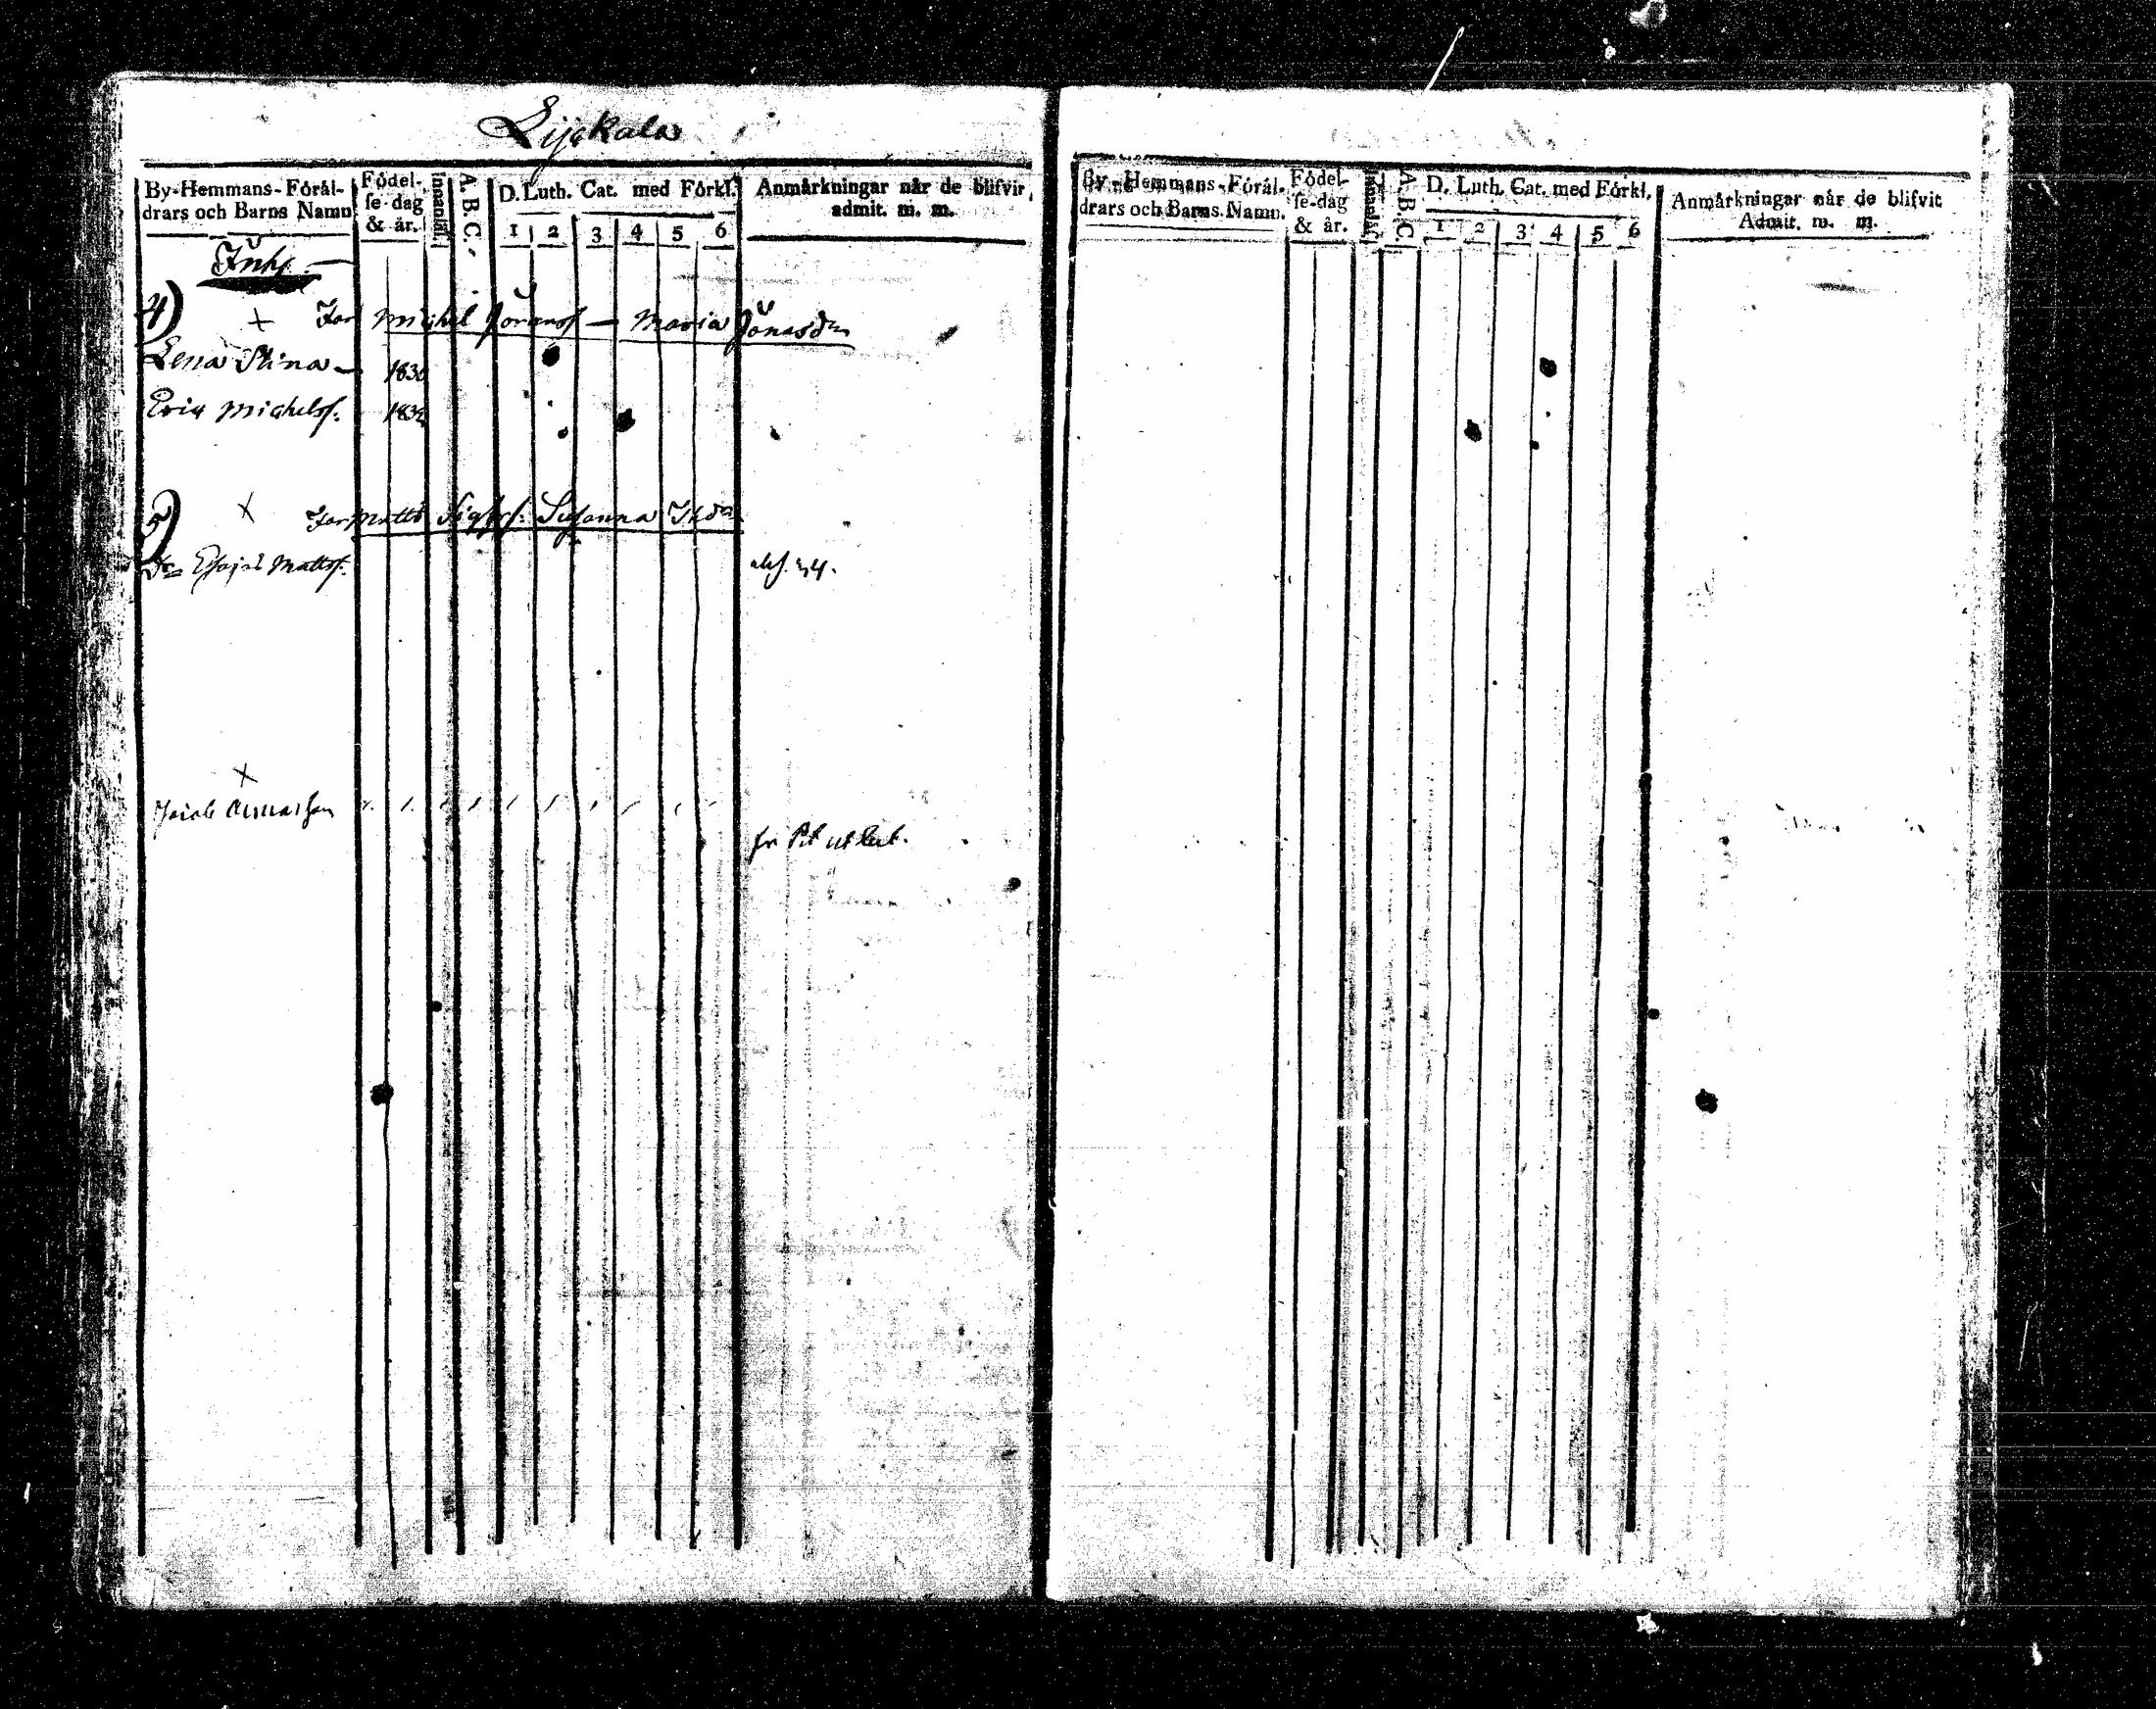 Lijckala
By-Hemmans-Föräl-
drars och Barns Namn
Födel-
se-dag
& år.
Innanläs.
A. B. C.
D. Luth. Cat. med Förkl.
1 2 3 4 5 6
Anmärkningar när de blifvit
admit. m. m.
Inhs.
4) × Tor Michel Göranss. — Maria Jönasdr
Lena Stina — 1830
Eric Michelss. 1832
5) × Tor Matts Sigfrs. Susanna
Esajas Mattss.
×
Jacob
fr
By-Hemmans-Föräl-
drars och Barns Namn.
Födel-
se-dag
& år.
Innanläs.
A. B. C.
D. Luth. Cat. med Förkl.
1 2 3 4 5 6
Anmärkningar när de blifvit
Admit. m. m.